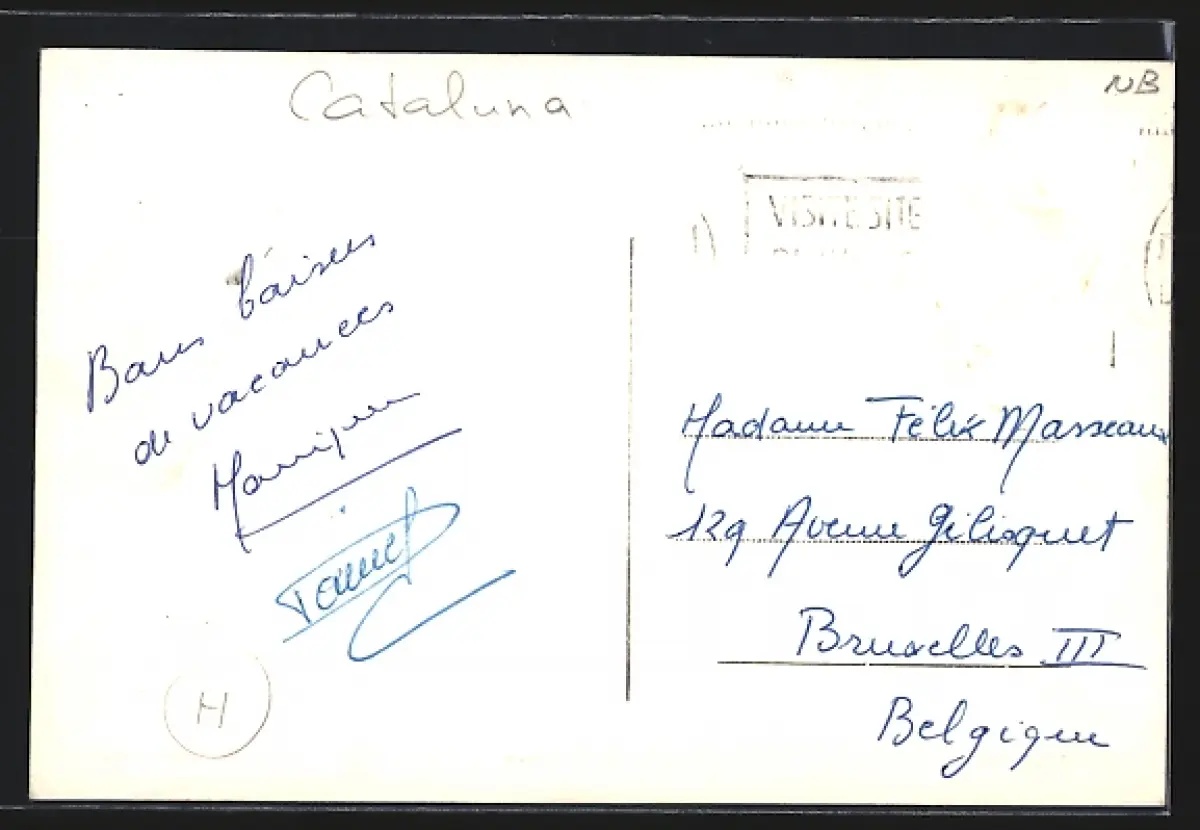 Cataluna
NB
VISITE SITE
Bons baisers
de vacances
Monique
H
Madame Félix Masseaux
129 Avenue Gilisquet
Bruxelles III
Belgique